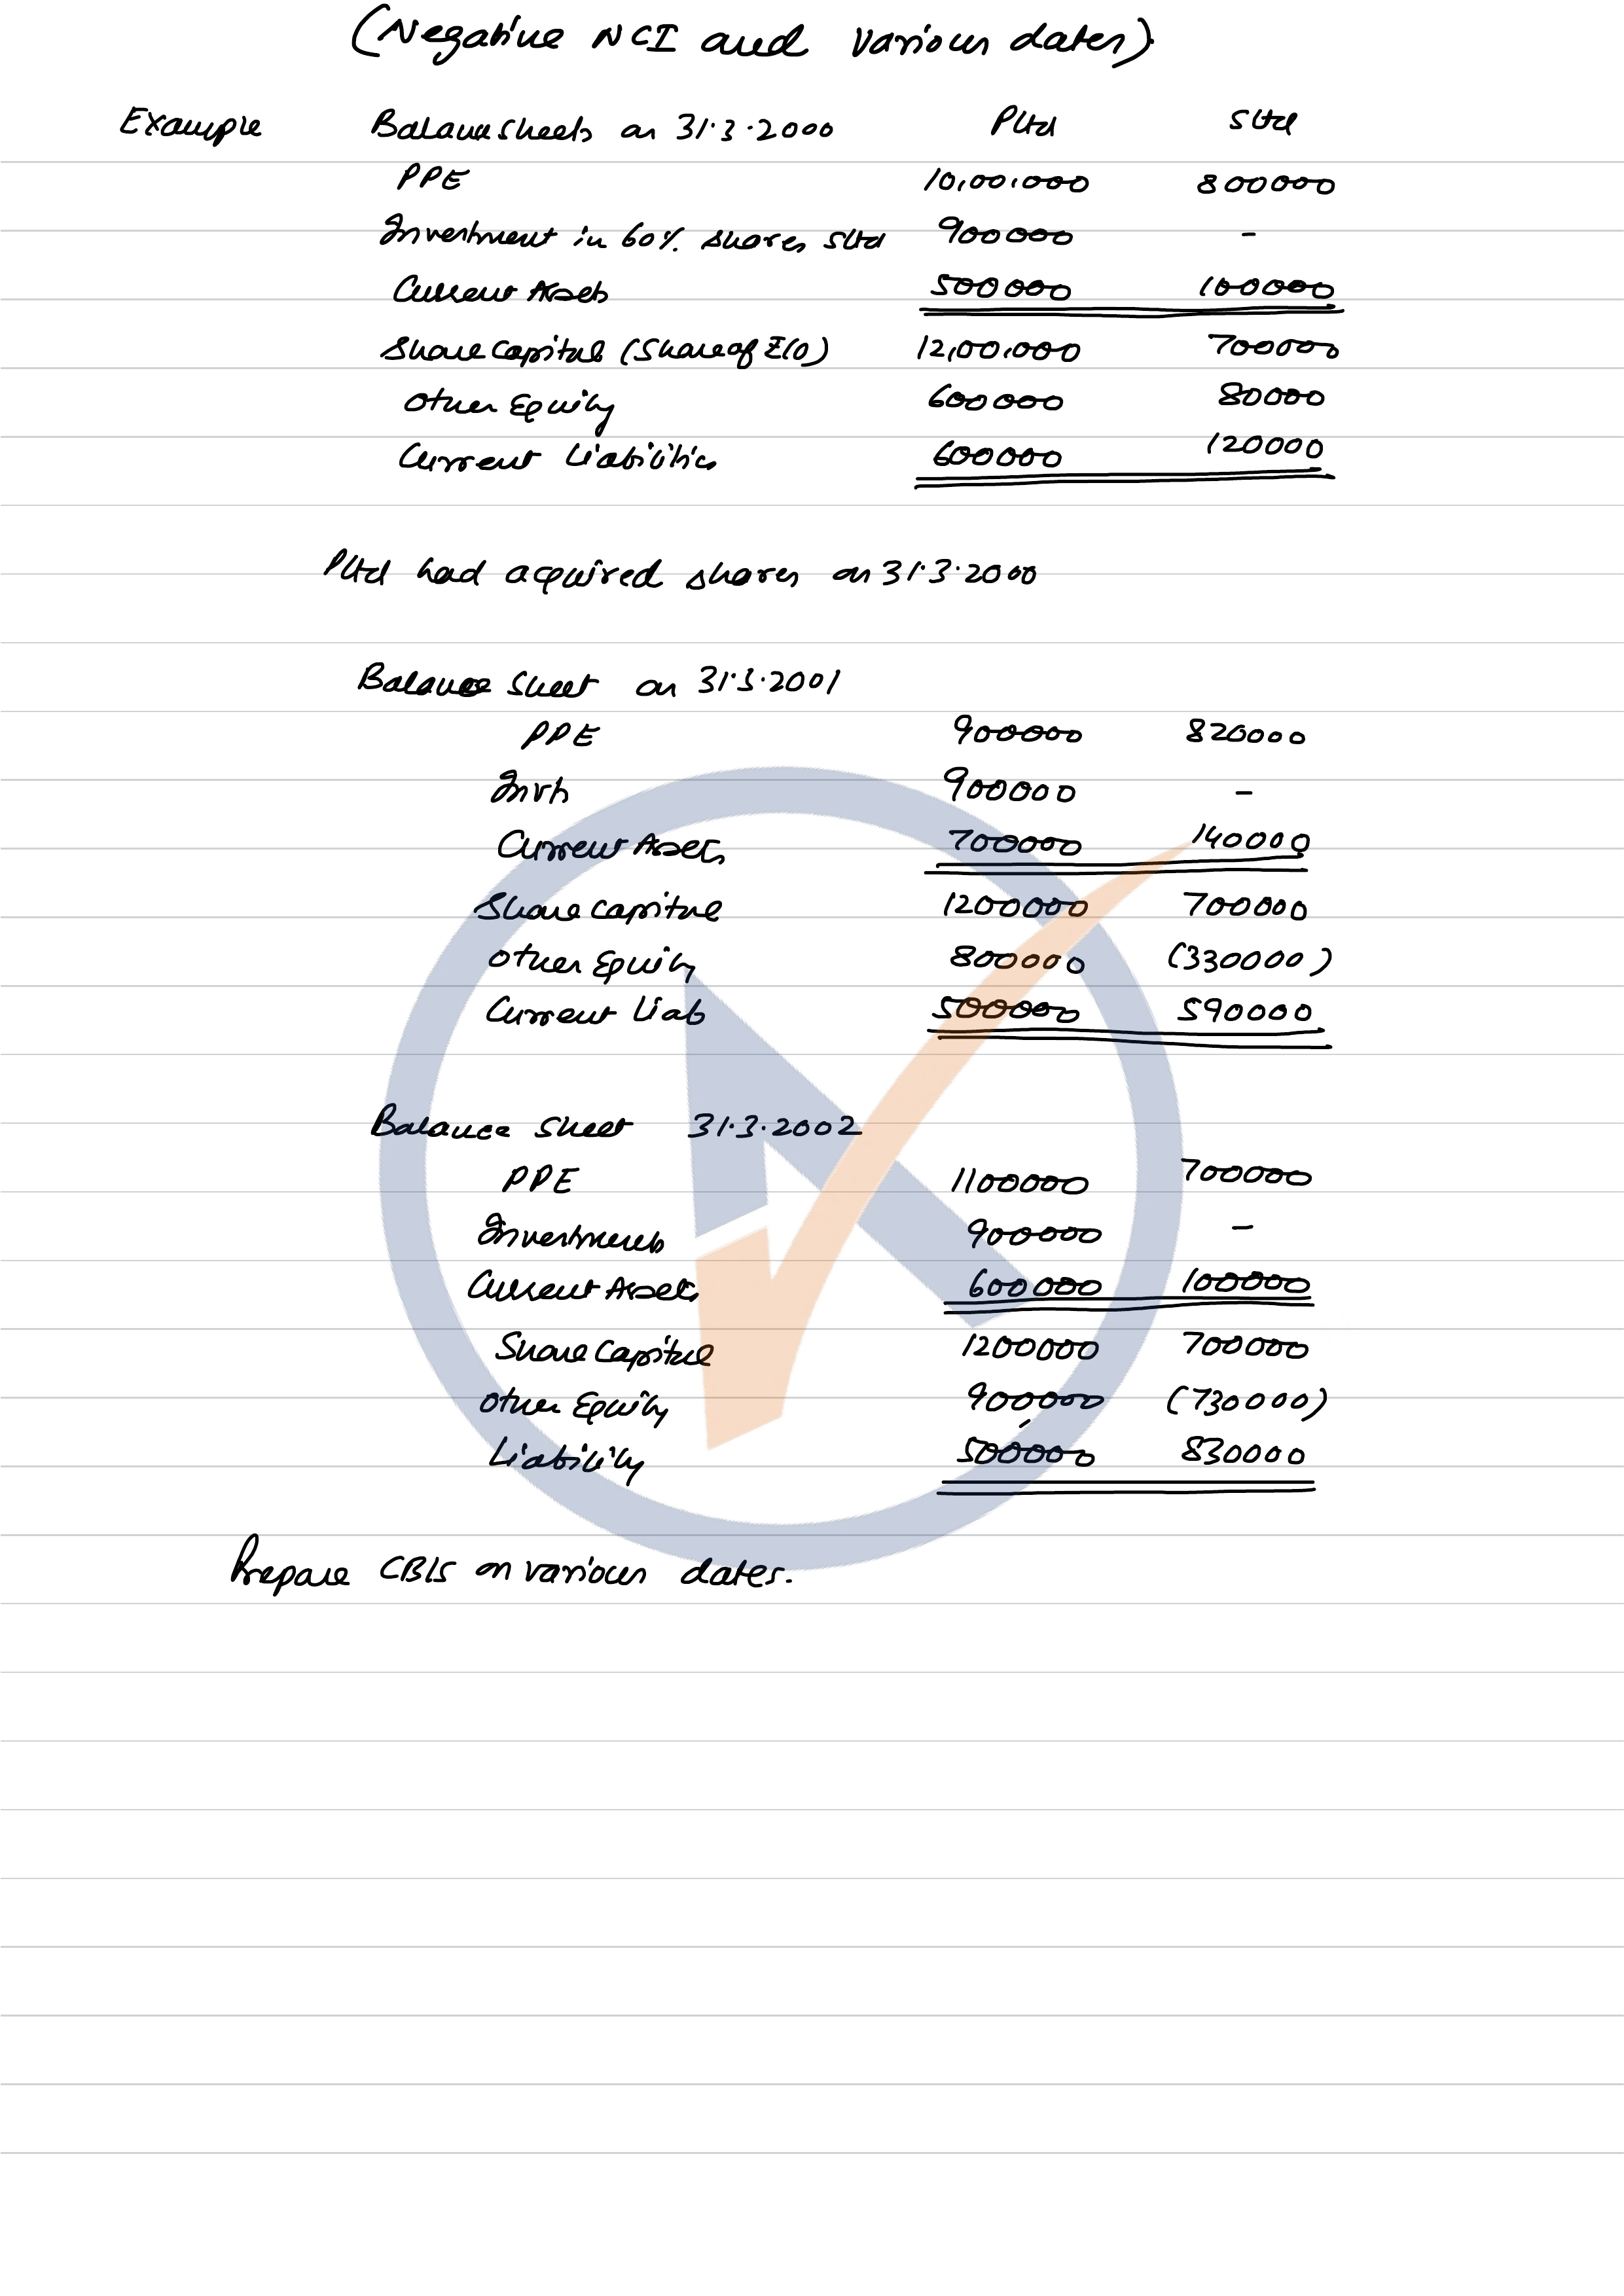 (Negative NCI and various dates)
Example Balancesheets on 31.3.2000 Pltd Sltd
PPE 10,00,000 800000
Investment in 60% shares Sltd 900000 -
Current Assets 500000 100000
Share capital (Share of ₹10) 12,00,000 700000
Other Equity 600000 80000
Current Liabilities 600000 120000
Pltd had acquired shares on 31.3.2000
Balance Sheet on 31.3.2001
PPE 900000 820000
Invts 900000 -
Current Assets 700000 140000
Share capital 1200000 700000
Other Equity 800000 (330000)
Current Liab 500000 590000
Balance Sheet 31.3.2002
PPE 1100000 700000
Investments 900000 -
Current Assets 600000 100000
Share Capital 1200000 700000
Other Equity 900000 (730000)
Liability 500000 830000
Prepare CBS on various dates.